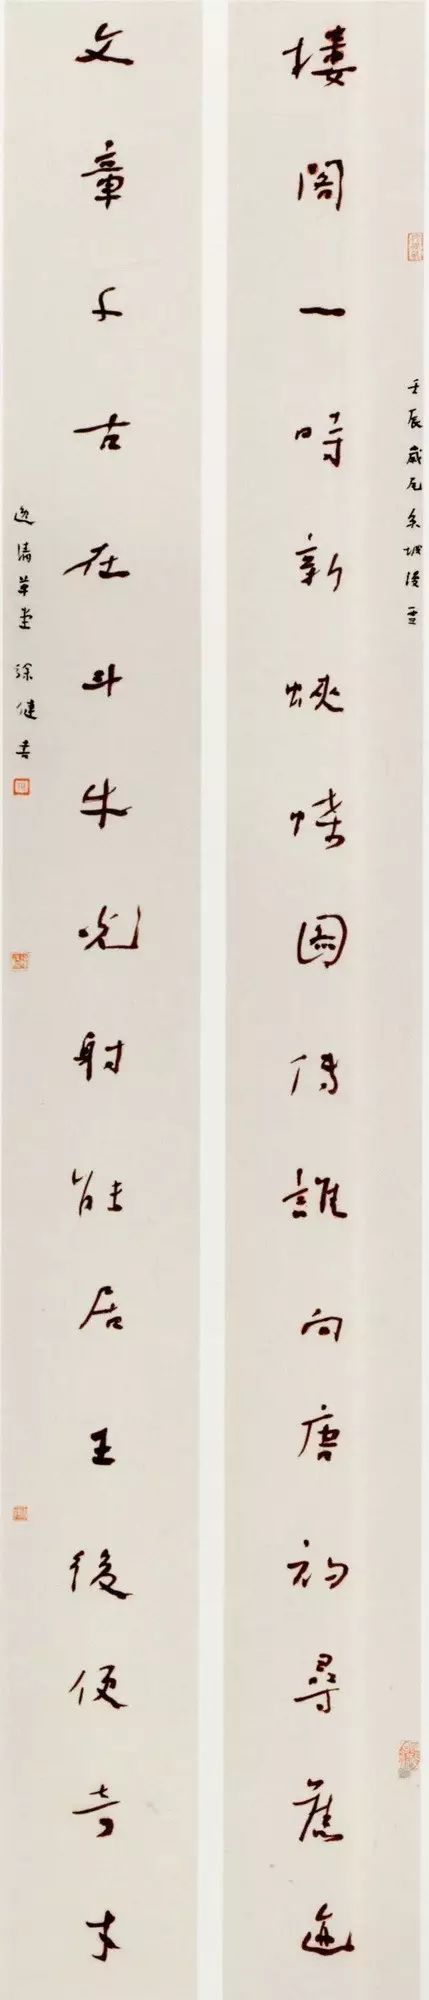 壬辰歲尾
樓閣一時新蛺蝶圖傳誰向唐初尋舊迹
文章千古在斗牛光射能居王後便奇才
逸清草堂 徐健書